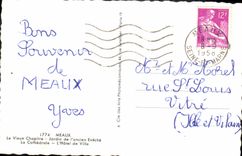 Bons
Souvenir
de
MEAUX
Yves
1774 MEAUX
Le Vieux Chapitre - Jardin de l'ancien Evêché
La Cathédrale - L'Hôtel de Ville
12F
1958
SEINE
MARNE
Mr et Me Morel
rue St Louis
Vitré
(Ille et Vilaine)